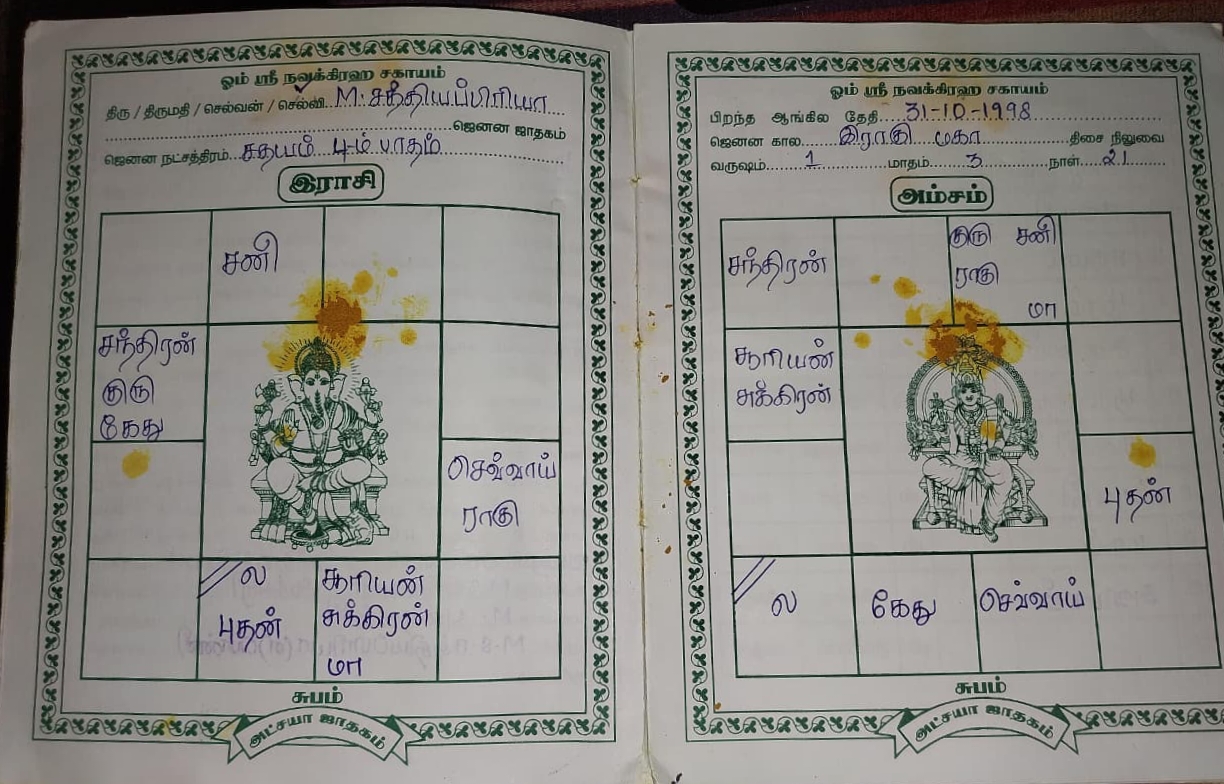 ஓம் ஸ்ரீ நவக்கிரஹ சகாயம்
திரு / திருமதி / செல்வன் / செல்வி.. M. சத்தியப்பிரியா
ஜெனன ஜாதகம்
ஜெனன நட்சத்திரம்... சதயம் 4-ம் பாதம்
இராசி
சனி
சந்திரன்
குரு
கேது
செவ்வாய்
ராகு
ல
புதன்
சூரியன்
சுக்கிரன்
மா
சுபம்
அட்சயா ஜாதகம்
ஓம் ஸ்ரீ நவக்கிரஹ சகாயம்
பிறந்த ஆங்கில தேதி.... 31-10-1998
ஜெனன கால இராகு மகா திசை நிலுவை
வருஷம்.... 1 மாதம்.... 3 நாள்.... 21
அம்சம்
சந்திரன்
குரு சனி
ராகு
மா
சூரியன்
சுக்கிரன்
புதன்
ல
கேது
செவ்வாய்
சுபம்
அட்சயா ஜாதகம்